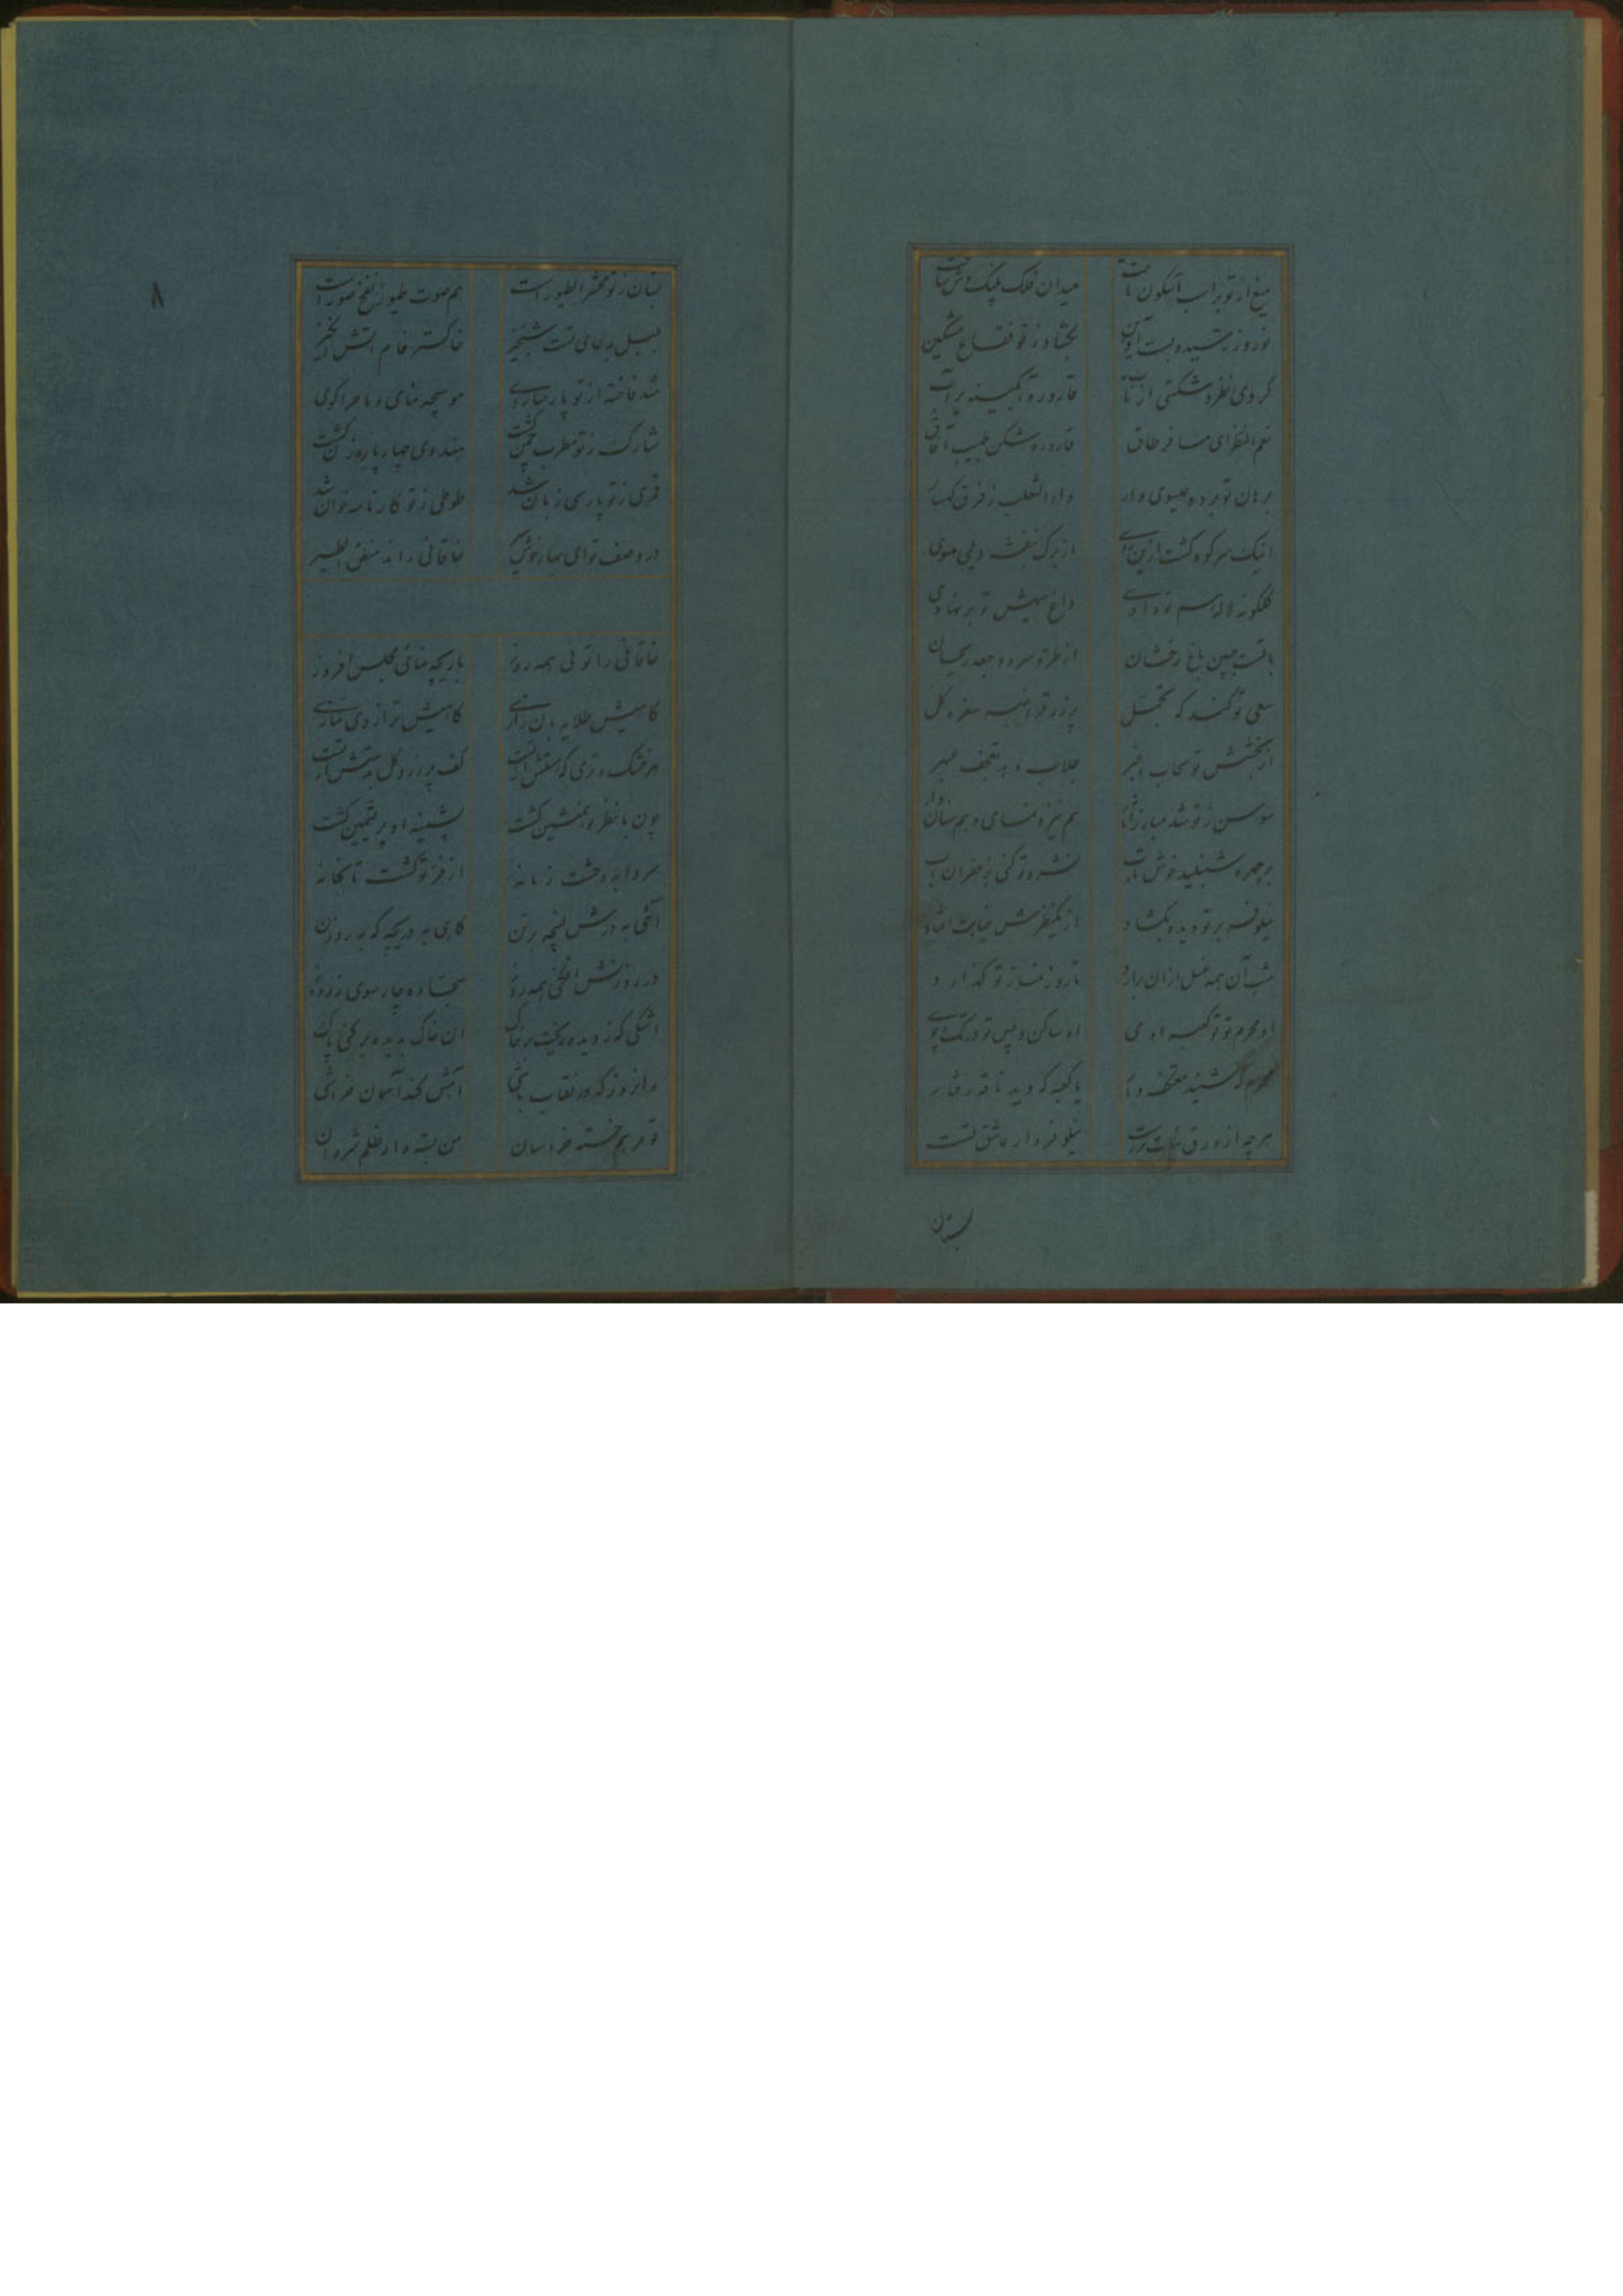 میغ از تو بر اسب آبگون تاخت میدان فلک پلنک وش ساخت
نوروز رسیده بست آذین بکشاد ز تو فقاع مشکین
کردی نظر و شکستی از تاب قاروره آبکینه پر آب
نعم النظر ای مسافر طاق قاروره شکن طبیب آفاق
برهان تو برده عیسوی وار داء الثعلب ز فرق کهسار
اینک سر کوه کشت ازین روی از برک بنفشه دیلمی موی
کلکونه لاله هم تو دادی داغ سیهش تو بر نهادی
یافت جبین باغ رخشان از طره سرو و جعد ریحان
سعی تو کند که تجمل پر زر قراضه سفره کل
از بخشش تو سحاب اخضر جلاب دهد تحف
سوسن ز تو شد مبارز هم نیزه نمای و هم سنان دار
بر چهره شنبلید خوش تاب نشره تو کنی ز زعفران آب
نیلوفر بر تو دیده بکشاد از یکنظرش جنابت افتاد
شب آن همه غسل از ان برآرد تا روز نماز تو گذارد
او محرم تو تو کعبه اوی او ساکن و پس تو در تک و پوی
محرم که شنید معتکف وار یا کعبه که دید ناقه رفتار
هر چه از ورق نبات برتست نیلوفر وار عاشق تست
بستان
۸
بستان ز تو محشر الطیور است هم صوت طیور نفخ صور است
بلبل بدعای تست شبخیز خاکستر فام آتش انگیز
شد فاخته از تو پار ساروی موسیچه نمای و ماجرا کوی
شارک ز تو مطرب چمن کشت هندوی چهارپاره زن کشت
قمری ز تو پارسی زبان شد طوطی ز تو کارنامه خوان شد
در وصف تو ای بهار خوش خاقانی راند منطق الطیر
خاقانی را توئی همه روز بازیچه نمای مجلس افروز
کاهیش طلایه بان رازی کاهیش ترازدی نمازی
هر خشک و تری که هستش از تست کف پر زر و کل بدستش از تست
چون با نظر تو همنشین کشت پشمینه او بریشمین کشت
سردابه وحشت زمانه از فر تو کشت تابخانه
آئی به درش پنجه بر تن کاهی به دریچه که به روزن
در روزنش افکنی همه روز سجاده چار سوی زردوز
اشکی که ز دیده ریخت بر خاک آن خاک بدیده بر کنی پاک
وانروز که در نقاب باشی آهش کند آسمان خراشی
تو مرهم خسته خراسان من بسته دار ظلم شروان